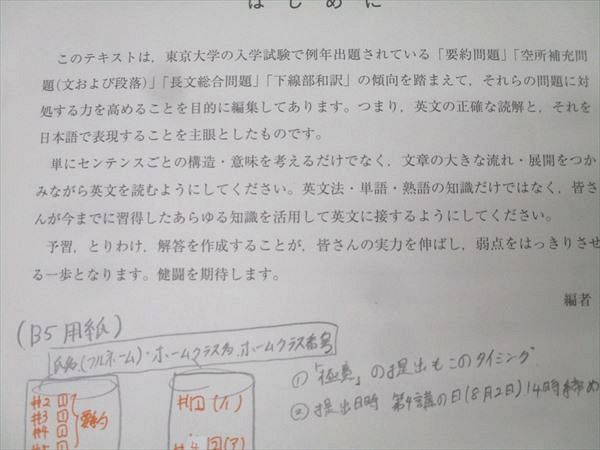 はじめに
このテキストは，東京大学の入学試験で例年出題されている「要約問題」「空所補充問
題(文および段落)」「長文総合問題」「下線部和訳」の傾向を踏まえて，それらの問題に対
処する力を高めることを目的に編集してあります。つまり，英文の正確な読解と，それを
日本語で表現することを主眼としたものです。
単にセンテンスごとの構造・意味を考えるだけでなく，文章の大きな流れ・展開をつか
みながら英文を読むようにしてください。英文法・単語・熟語の知識だけではなく，皆さ
んが今までに習得したあらゆる知識を活用して英文に接するようにしてください。
予習，とりわけ，解答を作成することが，皆さんの実力を伸ばし，弱点をはっきりさせ
る一歩となります。健闘を期待します。
編者
(B5用紙)
氏名(フルネーム)・ホームクラス名、ホームクラス番号
#2 1
#3 1
#4 1
#5 1
要約
#1 (イ)
#4 2(ア)
① 「極意」の提出もこのタイミング
② 提出日時 第4講の日(8月2日)14時締め